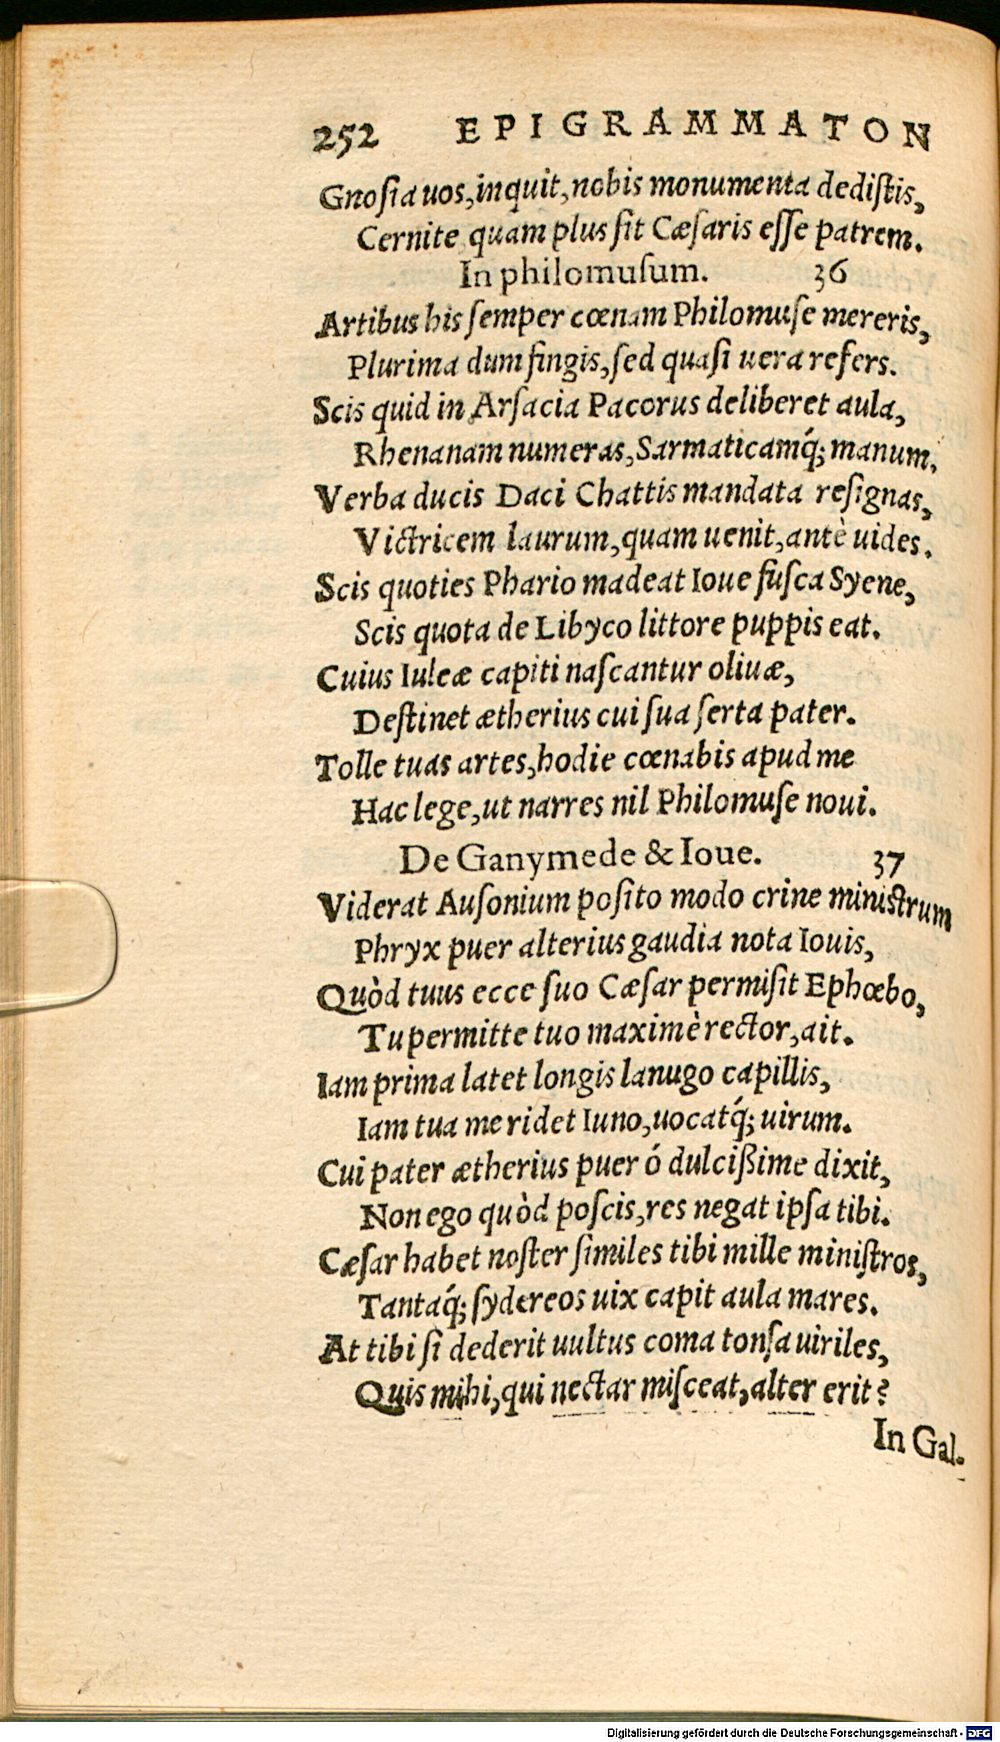 252 EPIGRAMMATON
Gnoſia uos, inquit, nobis monumenta dediſtis,
Cernite quam plus ſit Cæſaris eſſe patrem.
In philomuſum. 36
Artibus his ſemper cœnam Philomuſe mereris,
Plurima dum fingis, ſed quaſi uera refers.
Scis quid in Arſacia Pacorus deliberet aula,
Rhenanam numeras, Sarmaticamq́; manum.
Verba ducis Daci Chattis mandata reſignas,
Victricem laurum, quam uenit, antè uides.
Scis quoties Phario madeat Ioue fuſca Syene,
Scis quota de Libyco littore puppis eat.
Cuius Iuleæ capiti naſcantur oliuæ,
Deſtinet ætherius cui ſua ſerta pater.
Tolle tuas artes, hodie cœnabis apud me
Hac lege, ut narres nil Philomuſe noui.
De Ganymede & Ioue. 37
Viderat Auſonium poſito modo crine miniſtrum
Phryx puer alterius gaudia nota Iouis,
Quòd tuus ecce ſuo Cæſar permiſit Ephœbo,
Tu permitte tuo maximè rector, ait.
Iam prima latet longis lanugo capillis,
Iam tua me ridet Iuno, uocatq́; uirum.
Cui pater ætherius puer ó dulcißime dixit,
Non ego quòd poſcis, res negat ipſa tibi.
Cæſar habet noſter ſimiles tibi mille miniſtros,
Tantaq́; ſydereos uix capit aula mares.
At tibi ſi dederit uultus coma tonſa uiriles,
Quis mihi, qui nectar miſceat, alter erit?
In Gal.
Digitalisierung gefördert durch die Deutsche Forschungsgemeinschaft - DFG